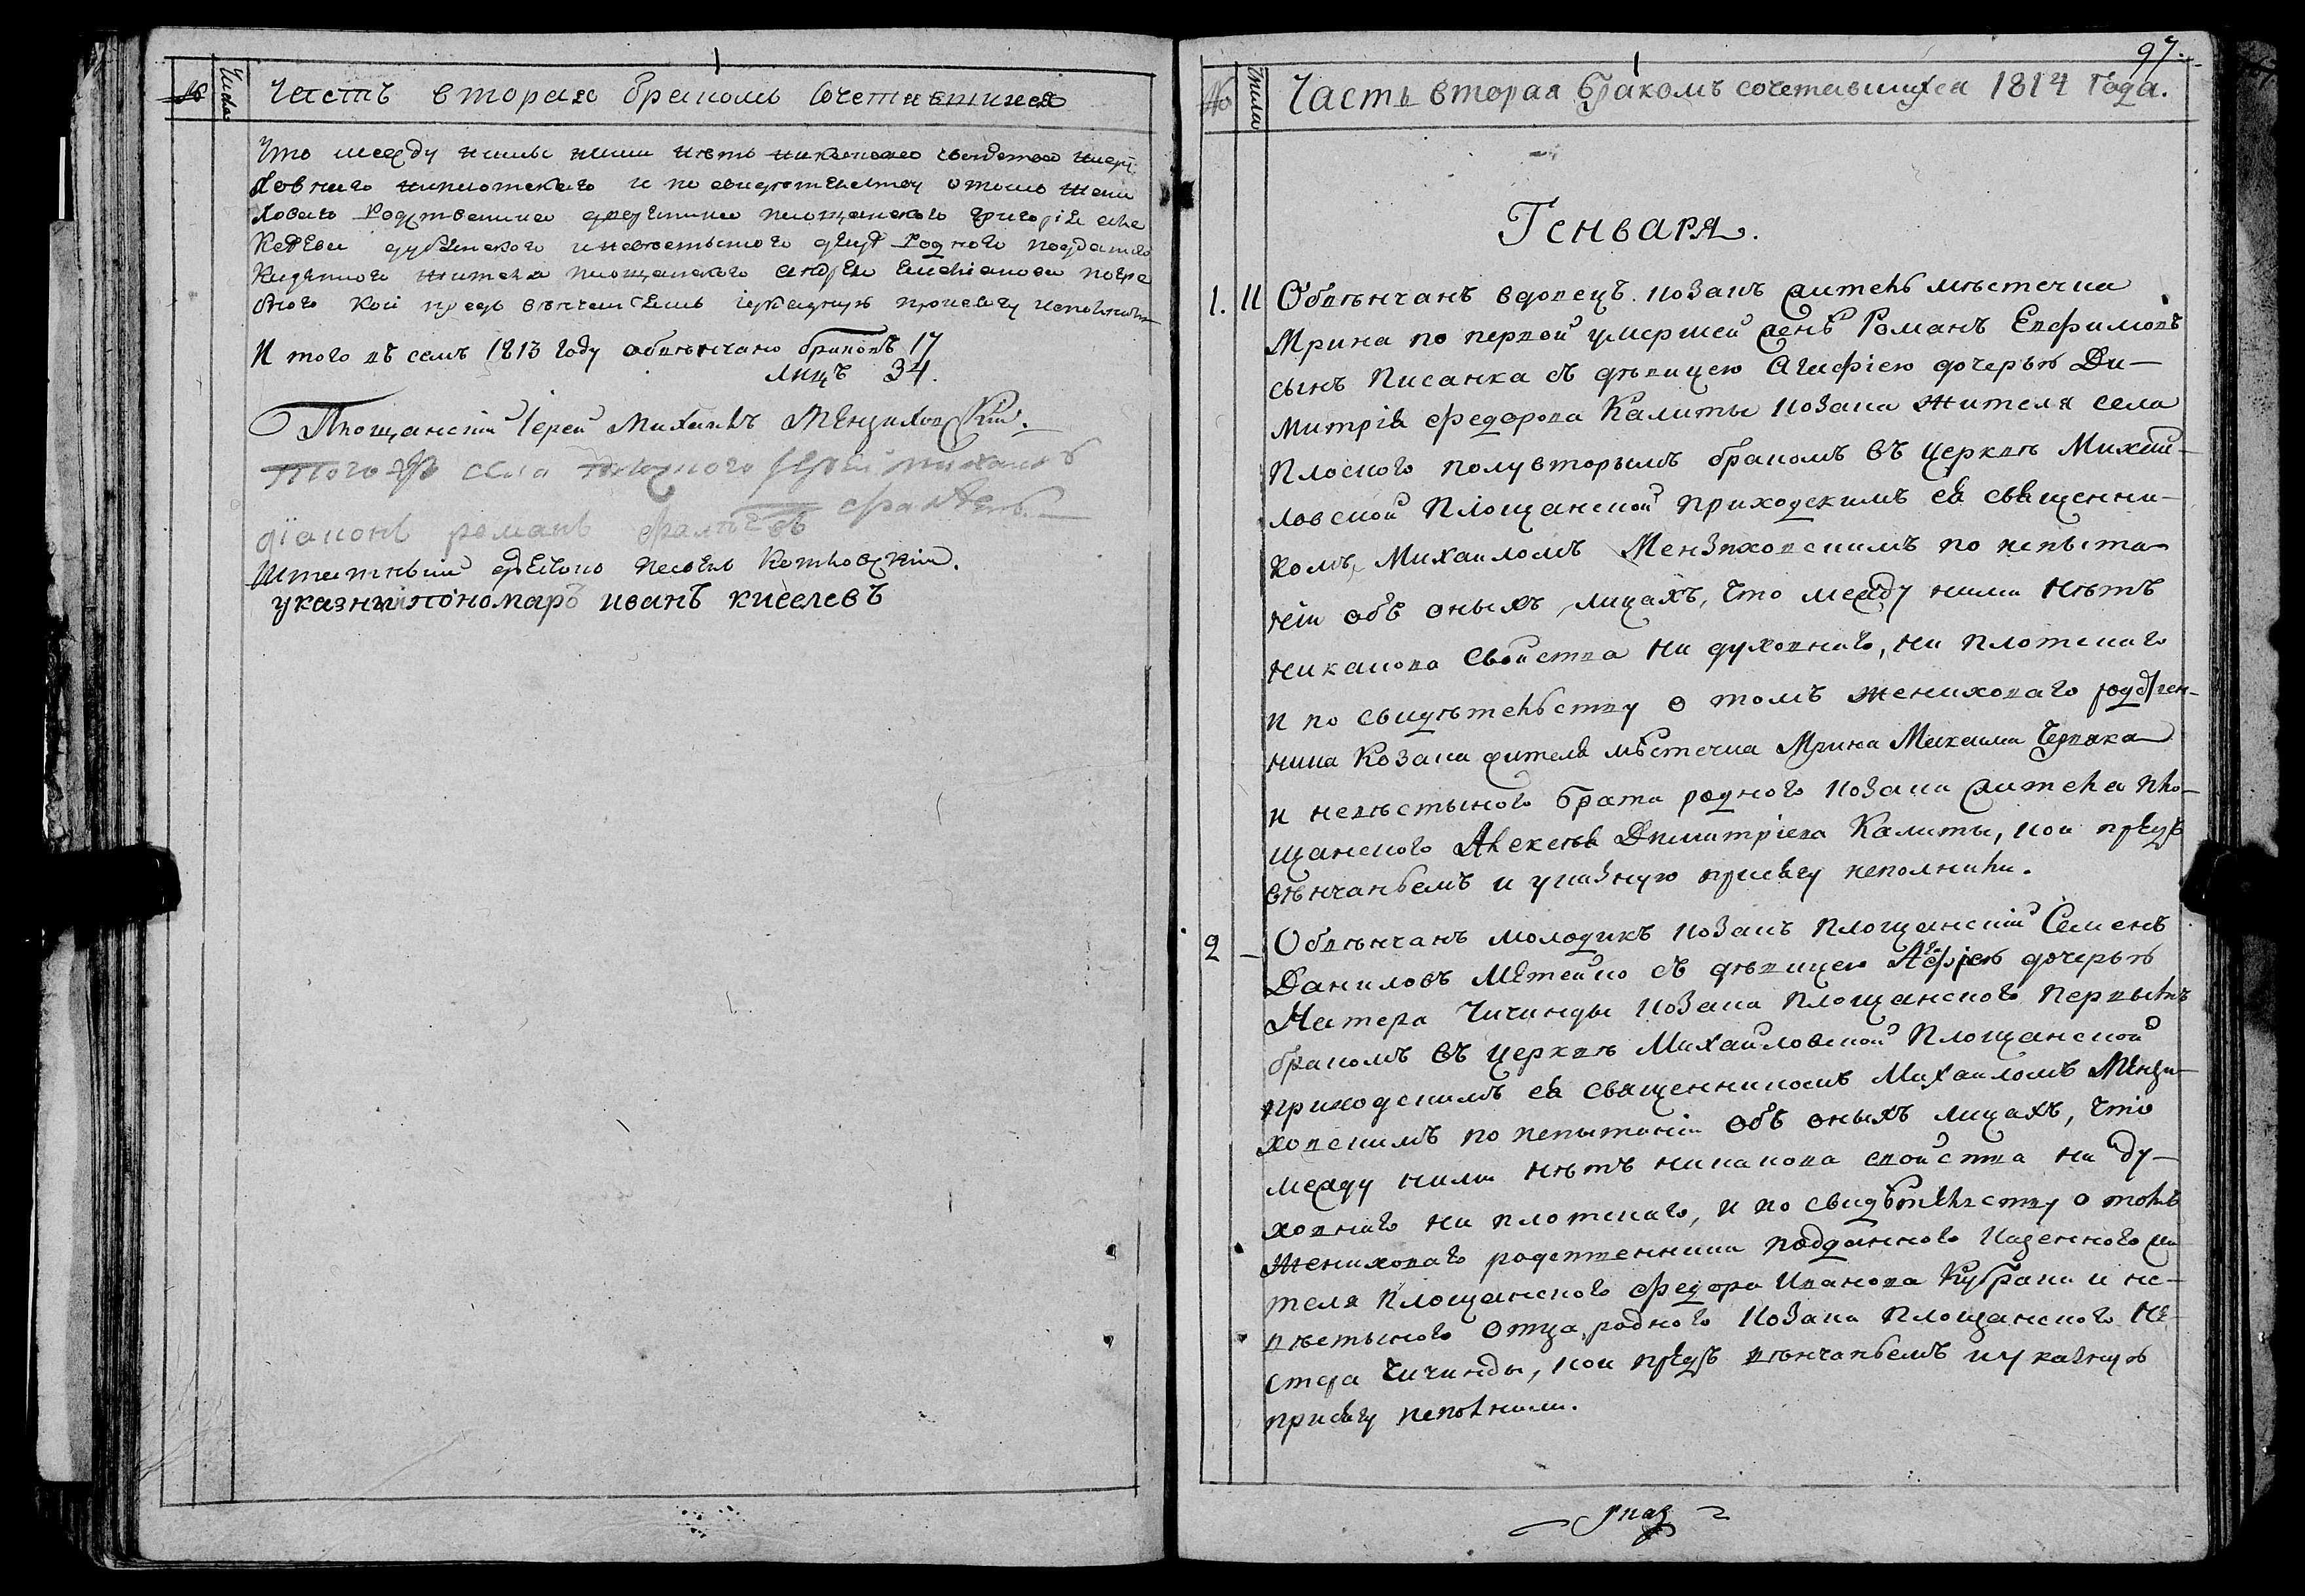 № Числа Часть вторая бракомъ сочетавшихся
Что между ними нѣтъ никакова свойства нидү
ховнаго ниплотскаго и по свидѣтельству отомъ жени
ховаго родственника площанского григорія
невѣстыного роднаго подданого
жителя площанского андрея
оного кои предъ вѣнчаніемъ іуказную присягу исполнили
И того въ семъ 1813 году обвѣнчано браковъ 17
лицъ 34.
Площанскій Іерей Михаилъ Мензиховскій.
того жъ села Іерей михаилъ
діаконъ романъ
Штатный дьячокъ Котковскій.
указный пономаръ иванъ киселевъ
97.
№ Числа Часть вторая Бракомъ сочетавшихся 1814 Года.
Генваря.
1. 11 Обвѣнчанъ вдовецъ козакъ житель мѣстечка
Мрина по первой умершей женѣ Романъ Евфимовъ
сынъ Писанка съ дѣвицею Агафіею дочерью Ди-
митрія федорова Калиты козака жителя села
Плоского полувторымъ бракомъ въ церквѣ Михай-
ловской Площанской приходскимъ ея священни-
комъ Михаиломъ Мензиховскимъ по испыта-
ніи объ оныхъ лицахъ, что между ними нѣтъ
никакова свойства ни духовнаго, ни плотскаго
и по свидѣтельству о томъ жениховаго родствен-
ника Козака жителя мѣстечка Мрина Максима Червяка
и невѣстыного брата родного козака жителя пло-
щанского Алексѣя Димитріева Калиты, кои предъ
вѣнчаньемъ и указную присягу исполнили.
2 — Обвѣнчанъ молодикъ козакъ площанскій Семенъ
Даниловъ Метейко съ дѣвицею дочерью
Нестера Чичинды козака площанского первымъ
бракомъ въ церквѣ Михайловской Площанской
приходскимъ ея священникомъ Михаиломъ Мензи-
ховскимъ по испытаніи объ оныхъ лицахъ, что
между ними нѣтъ никакова свойства ни ду-
ховнаго ни плотскаго, и по свидѣтельству о томъ
жениховаго родственника подданного казенного жи-
теля площанского федора Иванова Кубрака и не-
вѣстыного отца родного козака площанского Не-
стера Чичинды, кои предъ вѣнчаньемъ и указную
присягу исполнили.
указ